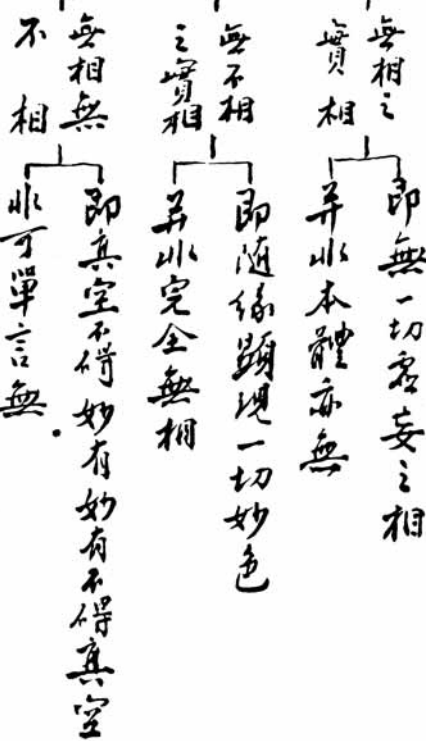 無相之
實相
即無一切虛妄之相
并非本體亦無
無不相
之實相
即隨緣顯現一切妙色
并非完全無相
無相無
不相
即真空不碍妙有妙有不碍真空
非可單言無